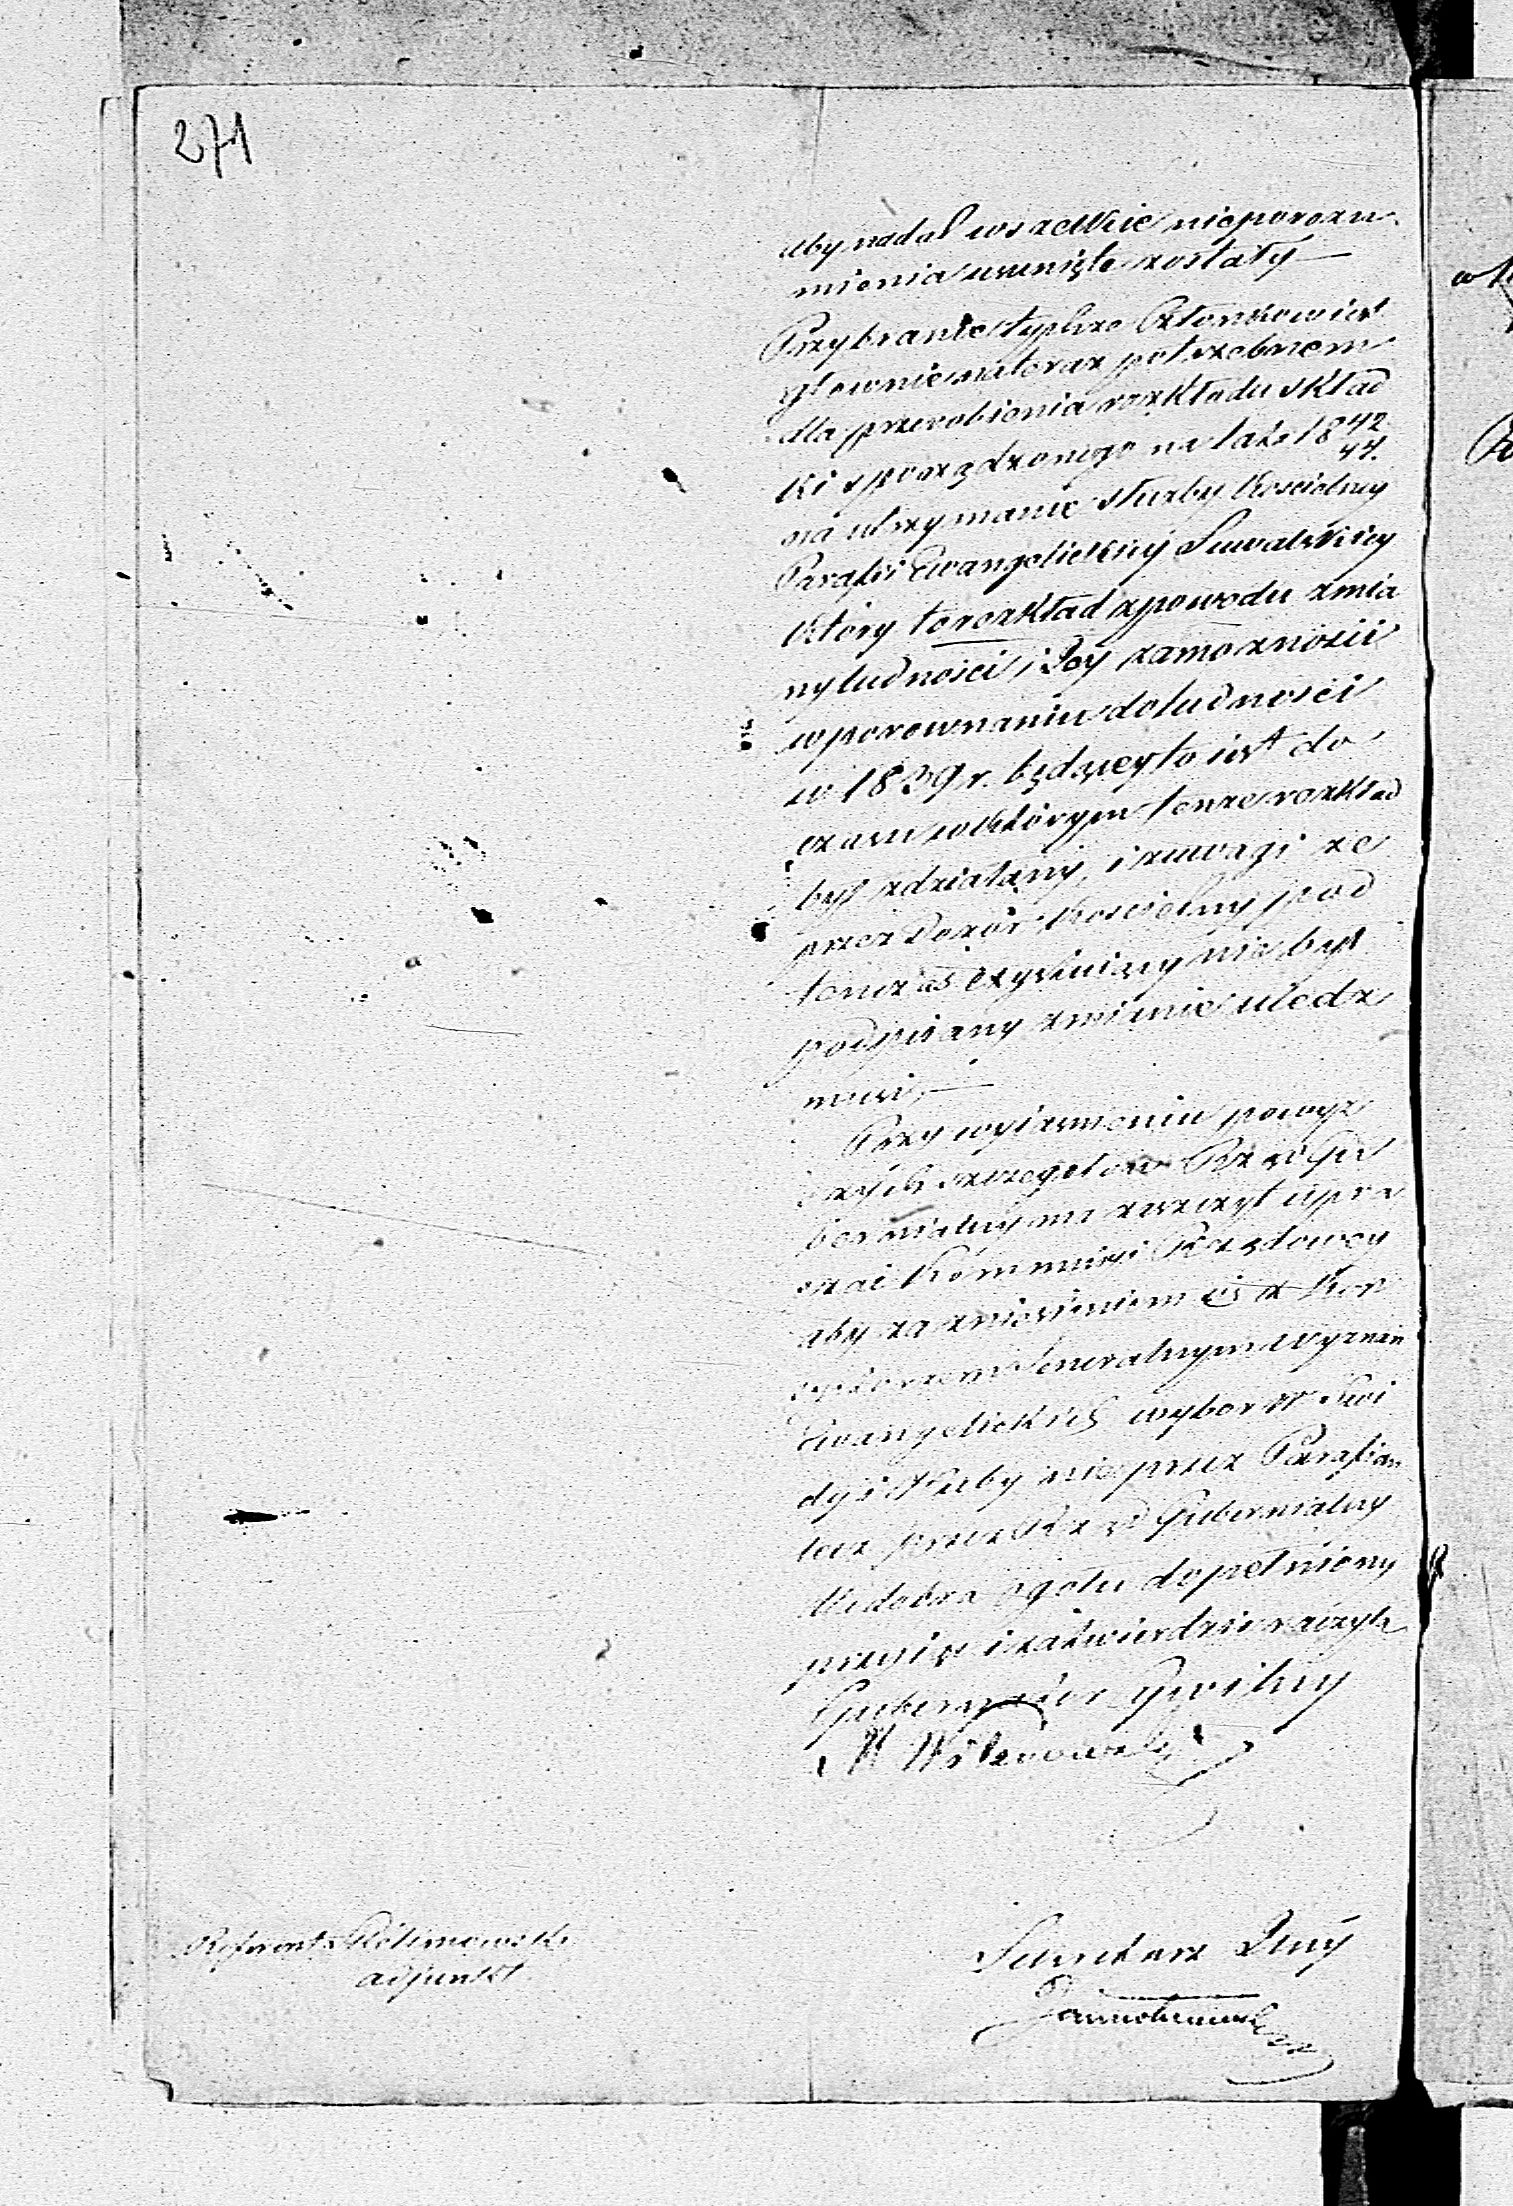 271
aby nadal wszelkie nieporozu
mienia usunięte zostały
Przybranie tychże Członkowiest
głownie nateraz potrzebnem
dla przerobienia rozkładu skład
ki sporządzonego na lata 1842/44.
na utrzymanie służby Koscielney
Parafii Ewangelickiey Suwalskiey
który to rozkład z powodu zmia
ny ludności i Jey zamożności
w porownaniu do ludności
w 1839 r. będącey to iest do
czasu w którym tenże rozkład
był zdziałany, i z uwagi że
przez Dozór Koscielny pod
tenczas exystuiący nie był
podpisany zmianie uledz
musi,—
Przy wyiasnieniu powyż
szych szczegołow Rząd Gu
bernialny ma zaszczyt upra
szać Kommissyi Rządowey
aby za zniesieniem się z Kon
systorzem Generalnym Wyznań
Ewangelickich wybor
dy i Kuby nie przez Parafian
lecz przez Rząd Gubernialny
dla dobra ogołu dopełniony
przyiąć i zatwierdzić raczyła
Gubernator Cywilny
Referent
adjunkt
Sekretarz Jlny